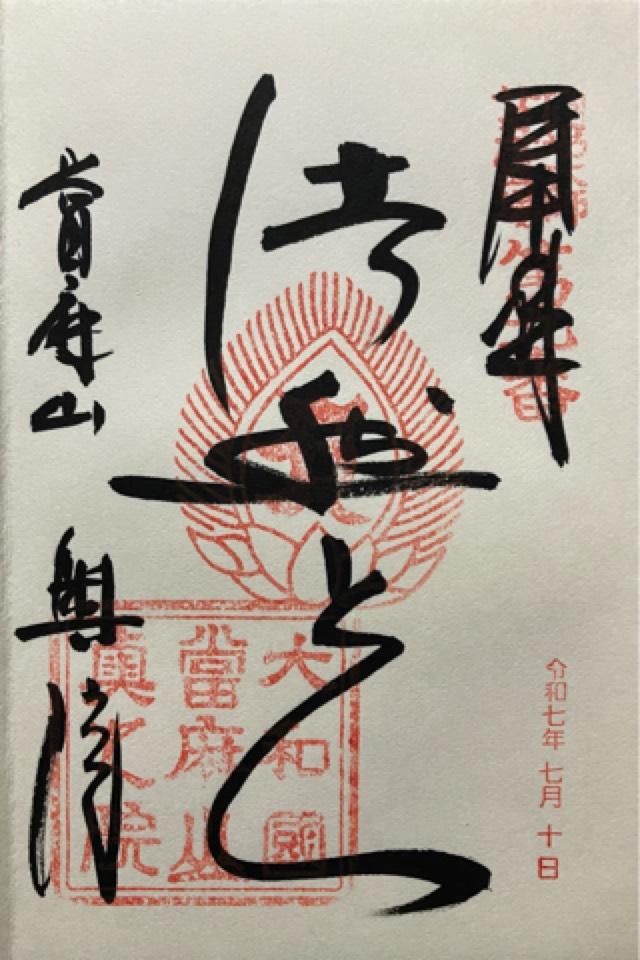 奉拝
第九番
法然上人
當麻山 奥院
大和國
當麻山
奥之院
令和七年 七月 十日